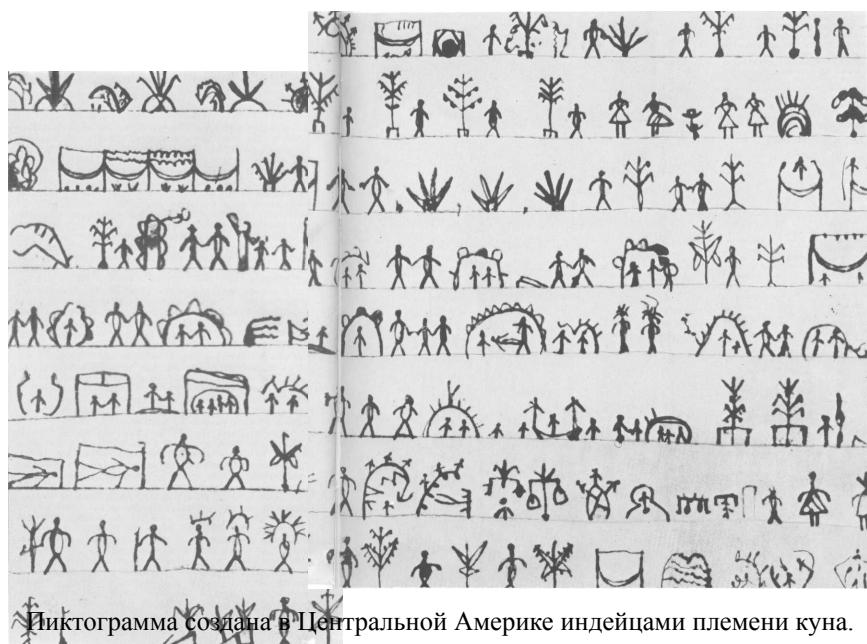 Пиктограмма создана в Центральной Америке индейцами племени куна.